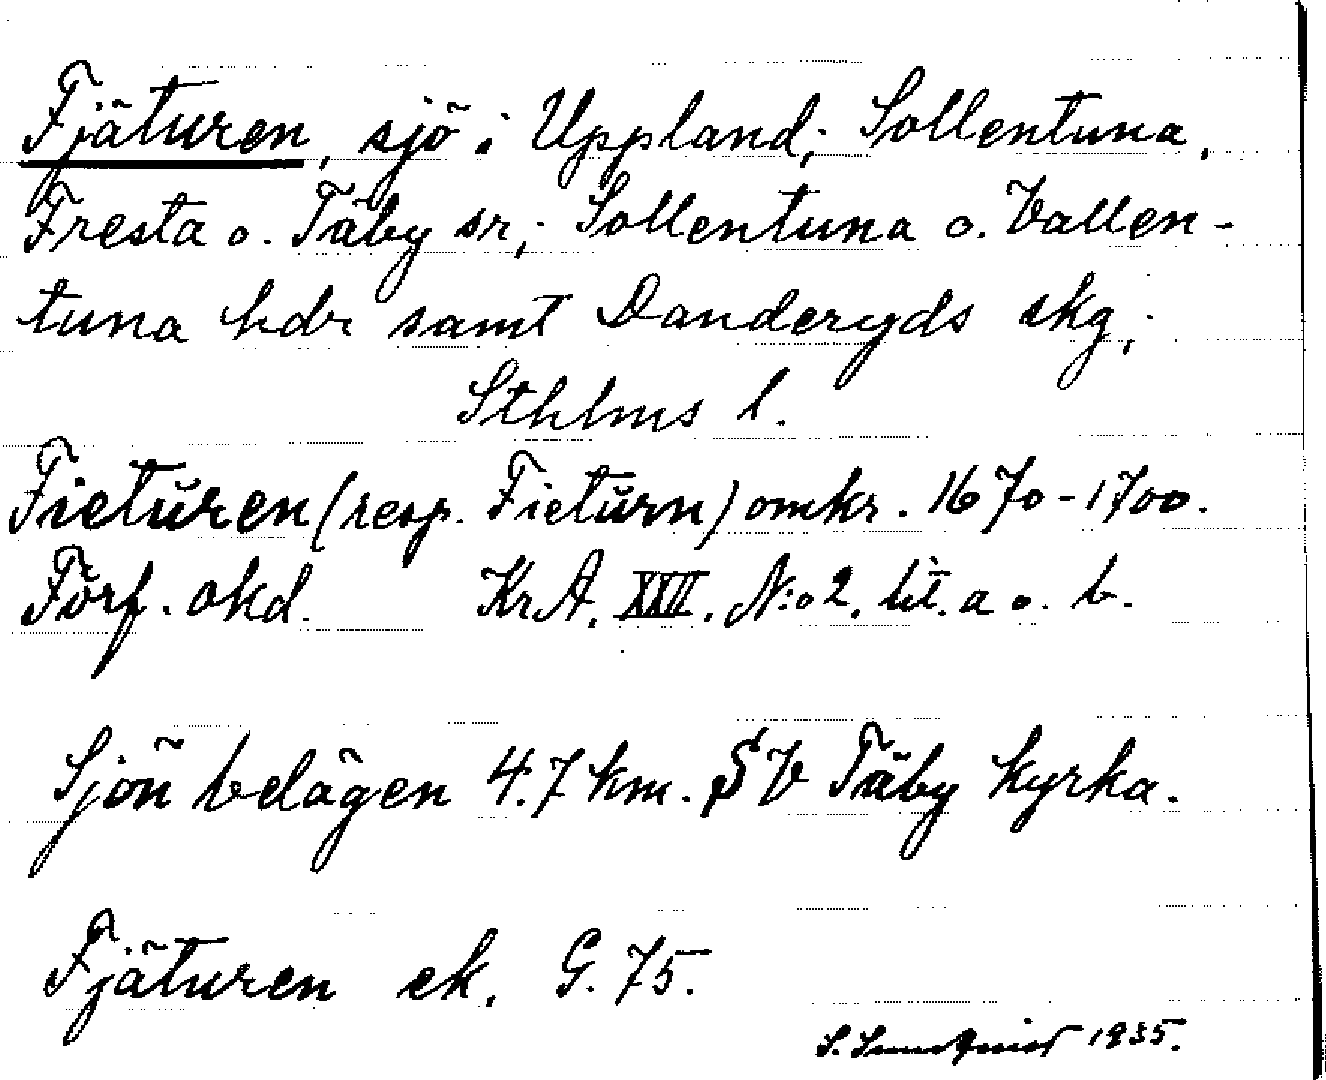 Fjäturen, sjö i Uppland; Sollentuna,
Fresta o. Täby sr; Sollentuna o. Vallen-
tuna hdr samt Danderyds skg;
Sthlms l.
Fieturen (resp. Fietŭrn) omkr. 1670-1700.
Förf. okd. KrA. XXII. N:o 2. lit. a o. b.
Sjön belägen 4.7 km. SV Täby kyrka.
Fjäturen ek. G. 75.
S. 1935.